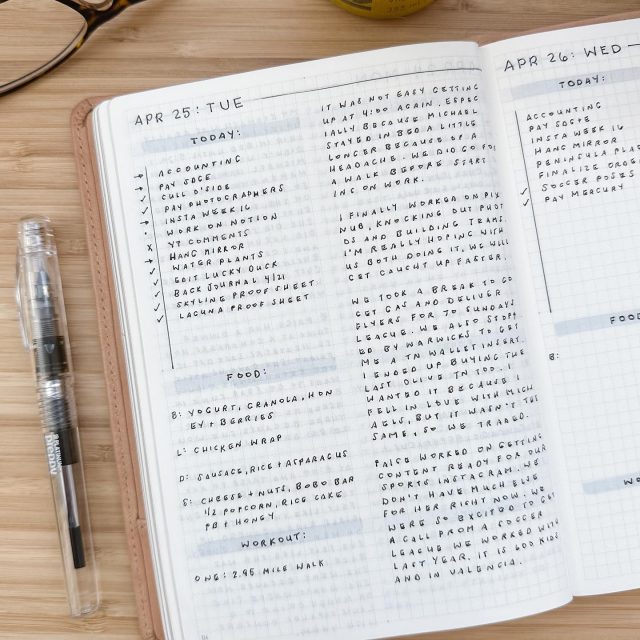 APR 25: TUE
TODAY:
→ ACCOUNTING
→ PAY SDGE
✓ CULL O'SIDE
✓ PAY PHOTOGRAPHERS
✓ INSTA WEEK 16
→ WORK ON NOTION
X YP COMMENTS
→ HANG MIRROR
✓ WATER PLANTS
→ EDIT LUCKY DUCK
✓ BACK JOURNAL 4/21
✓ SKYLINE PROOF SHEET
✓ LACUNA PROOF SHEET
FOOD:
B: YOGURT, GRANOLA, HON
EY + BERRIES
L: CHICKEN WRAP
D: SAUSAGE, RICE + ASPARAGUS
S: CHEESE + NUTS, BOBO BAR
1/2 POPCORN, RICE CAKE
PB + HONEY
WORKOUT:
ONE: 2.95 MILE WALK
IT WAS NOT EASY GETTING
UP AT 4:00 AGAIN, ESPEC
IALLY BECAUSE MICHAEL
STAYED IN BED A LITTLE
LONGER BECAUSE OF A
HEADACHE. WE DID GO FOR
A WALK BEFORE START
ING ON WORK.
I FINALLY WORKED ON PIX
NUB, KNOCKING OUT PHOT
OS AND BUILDING TEAMS.
I'M REALLY HOPING WITH
US BOTH DOING IT, WE WILL
GET CAUGHT UP FASTER.
WE TOOK A BREAK TO GO
GET GAS AND DELIVER
FLYERS FOR TO SUNDAYS
LEAGUE. WE ALSO STOPP
ED BY WARWICKS TO GET
ME A TN WALLET INSERT.
I ENDED UP BUYING THE
LAST OLIVE TN TOO. I
WANTED IT BECAUSE I
FELL IN LOVE WITH MICH
AELS, BUT IT WASN'T THE
SAME, SO WE TRADED.
PAIGE WORKED ON GETTING
CONTENT READY FOR OUR
SPORTS INSTAGRAM. WE
DON'T HAVE MUCH ELSE
FOR HER RIGHT NOW. WE
WERE SO EXCITED TO GET
A CALL FROM A SOCCER
LEAGUE WE WORKED WITH
LAST YEAR. IT IS 600 KIDS
AND IN VALENCIA.
APR 26: WED
TODAY:
ACCOUNTING
PAY SDG+E
INSTA WEEK 16
HANG MIRROR
PENINSULA
FINALIZE
SOCCER POSES
✓ PAY MERCURY
B:
PLATINUM
Preppy